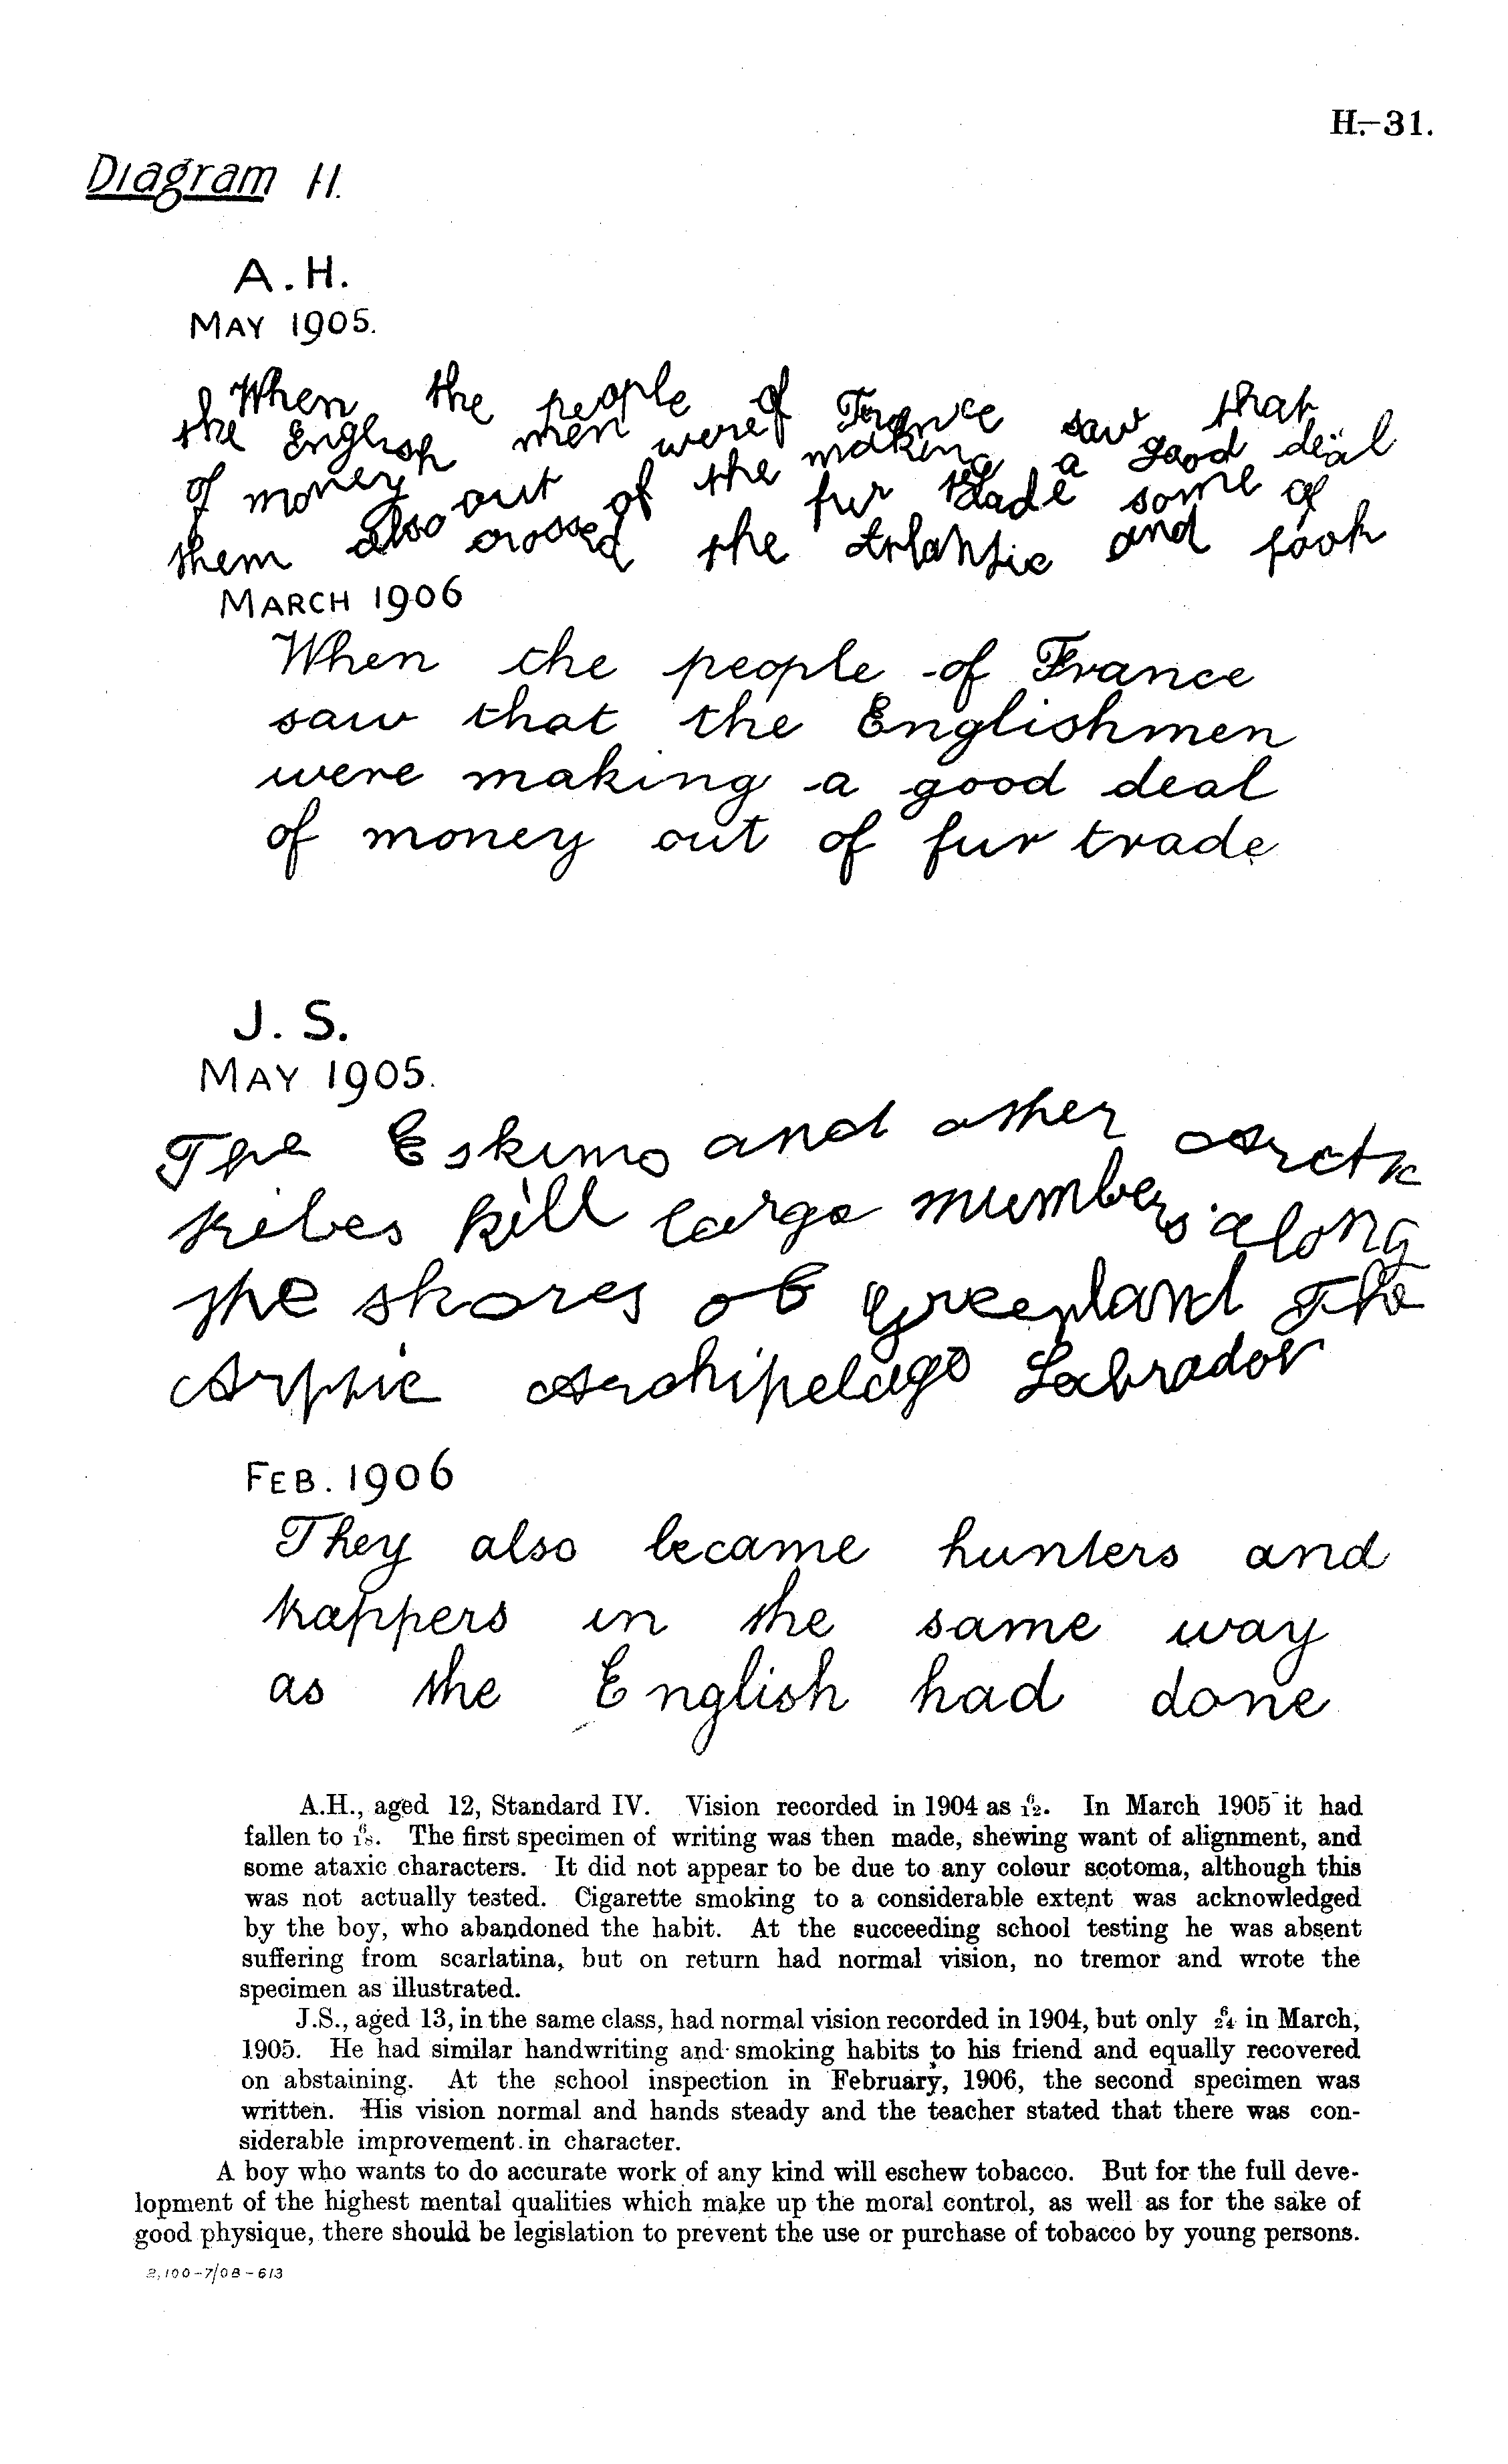 H.—31.
Diagram H.
A.H.
MAY 1905.
When the people of France saw that
the English men were making a good deal
of money out of the fur trade some of
them also crossed the Atlantic and took
MARCH 1906
When the people of France
saw that the Englishmen
were making a good deal
of money out of fur trade
J. S.
MAY 1905.
The Eskimo and other Arctic
tribes kill large numbers along
the shores of Greenland The
Arctic Archipelago Labrador
FEB. 1906
They also became hunters and
trappers in the same way
as the English had done
A.H., aged 12, Standard IV. Vision recorded in 1904 as 6/12. In March 1905 it had
fallen to 6/18. The first specimen of writing was then made, shewing want of alignment, and
some ataxic characters. It did not appear to be due to any colour scotoma, although this
was not actually tested. Cigarette smoking to a considerable extent was acknowledged
by the boy, who abandoned the habit. At the succeeding school testing he was absent
suffering from scarlatina, but on return had normal vision, no tremor and wrote the
specimen as illustrated.
J.S., aged 13, in the same class, had normal vision recorded in 1904, but only 6/24 in March,
1905. He had similar handwriting and smoking habits to his friend and equally recovered
on abstaining. At the school inspection in February, 1906, the second specimen was
written. His vision normal and hands steady and the teacher stated that there was con-
siderable improvement in character.
A boy who wants to do accurate work of any kind will eschew tobacco. But for the full deve-
lopment of the highest mental qualities which make up the moral control, as well as for the sake of
good physique, there should be legislation to prevent the use or purchase of tobacco by young persons.
2,100-7/08-613